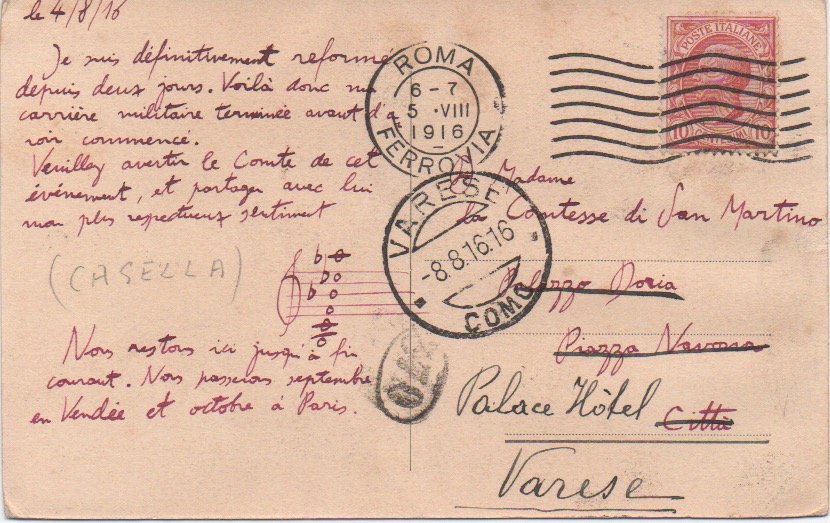 le 4/8/16
Je suis définitivement reformé
depuis deux jours. Voilà donc ma
carrière militaire terminée avant d'a
voir commencé.
Veuillez avertir le Comte de cet
événement, et partager avec lui
mon plus respectueux sentiment
(CASELLA)
Nous restons ici jusqu'à fin
courant. Nous passerons septembre
en Vendée et octobre à Paris.
ROMA
6-7
5 · VIII
1916
FERROVIA
POSTE ITALIANE
10 10
VARESE
-8.8.16.16
COMO
Madame
la Comtesse di San Martino
Palazzo Doria
Piazza Navona
Palace Hôtel Città
Varese